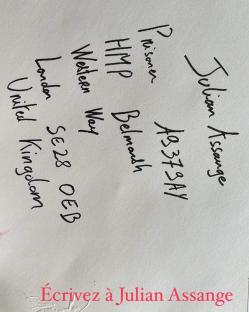 Julian Assange
Prisoner A9379AY
HMP Belmarsh
Western Way
London SE28 OEB
United Kingdom
Écrivez à Julian Assange